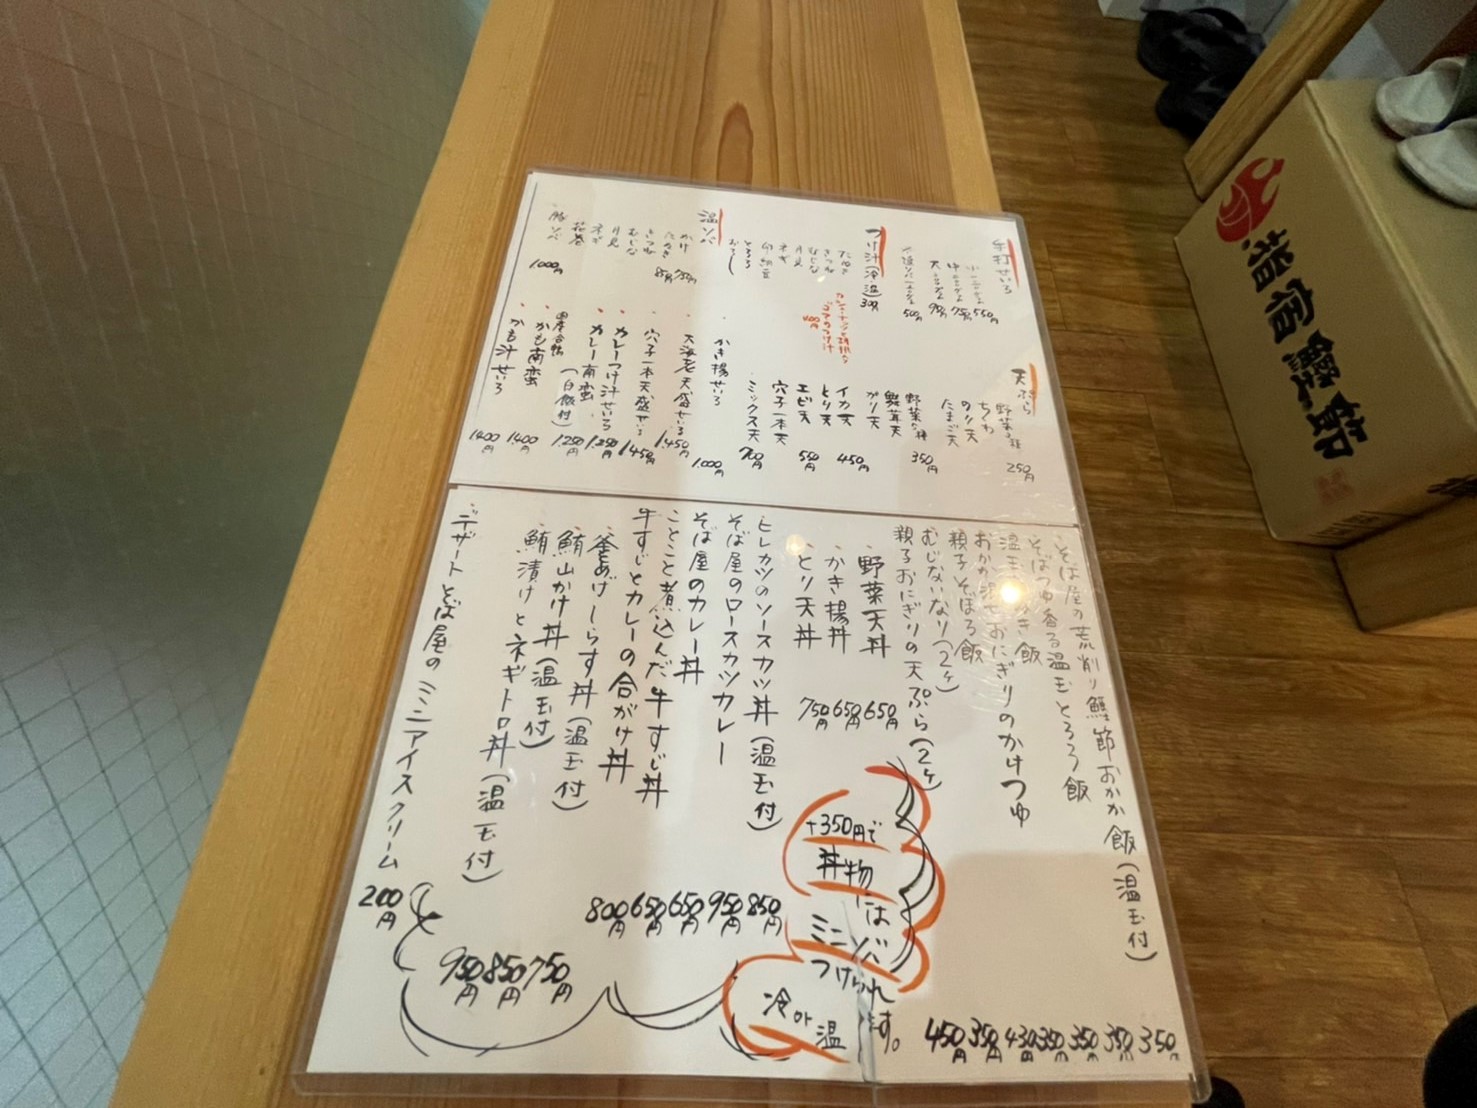 手打せいろ
小
550円
750円
950円
500円
つけ汁(冷・温)
300円
たぬき
きつね
むじな
月見
ネギ
とろろ
おろし
400円
温ソバ
かけ
750円
たぬき
850円
きつね
むじな
月見
ネギ
花巻
豚ソバ
1000円
天ぷら
野菜3種
250円
ちくわ
のり天
たまご天
野菜6種
350円
舞茸天
がり天
イカ天
450円
とり天
エビ天
550円
穴子一本天
ミックス天
700円
かき揚せいろ
1.000円
大海老天盛せいろ
1.450円
穴子一本天盛せいろ
1.450円
カレーつけ汁せいろ
1.350円
カレー南蛮
(白飯付)
1.250円
かも南蛮
1400円
かも汁せいろ
1400円
そば屋の荒削り鰹節おかか飯(温玉付)
350円
そばつゆ香る温玉とろろ飯
350円
350円
おにぎりのかけつゆ
350円
親子そぼろ飯
430円
むじないなり(2ヶ)
350円
親子おにぎりの天ぷら(2ヶ)
450円
野菜天丼
650円
かき揚丼
650円
とり天丼
750円
ヒレカツのソースカツ丼(温玉付)
850円
そば屋のロースカツカレー
950円
そば屋のカレー丼
650円
ことこと煮込んだ牛すじ丼
650円
牛すじとカレーの合がけ丼
800円
釜あげしらす丼(温玉付)
750円
鮪山かけ丼(温玉付)
850円
鮪漬けとネギトロ丼(温玉付)
950円
デザートそば屋のミニアイスクリーム
200円
+350円で
丼物には
ミニソバ
つけられ
ます。
冷or温
指宿鰹節